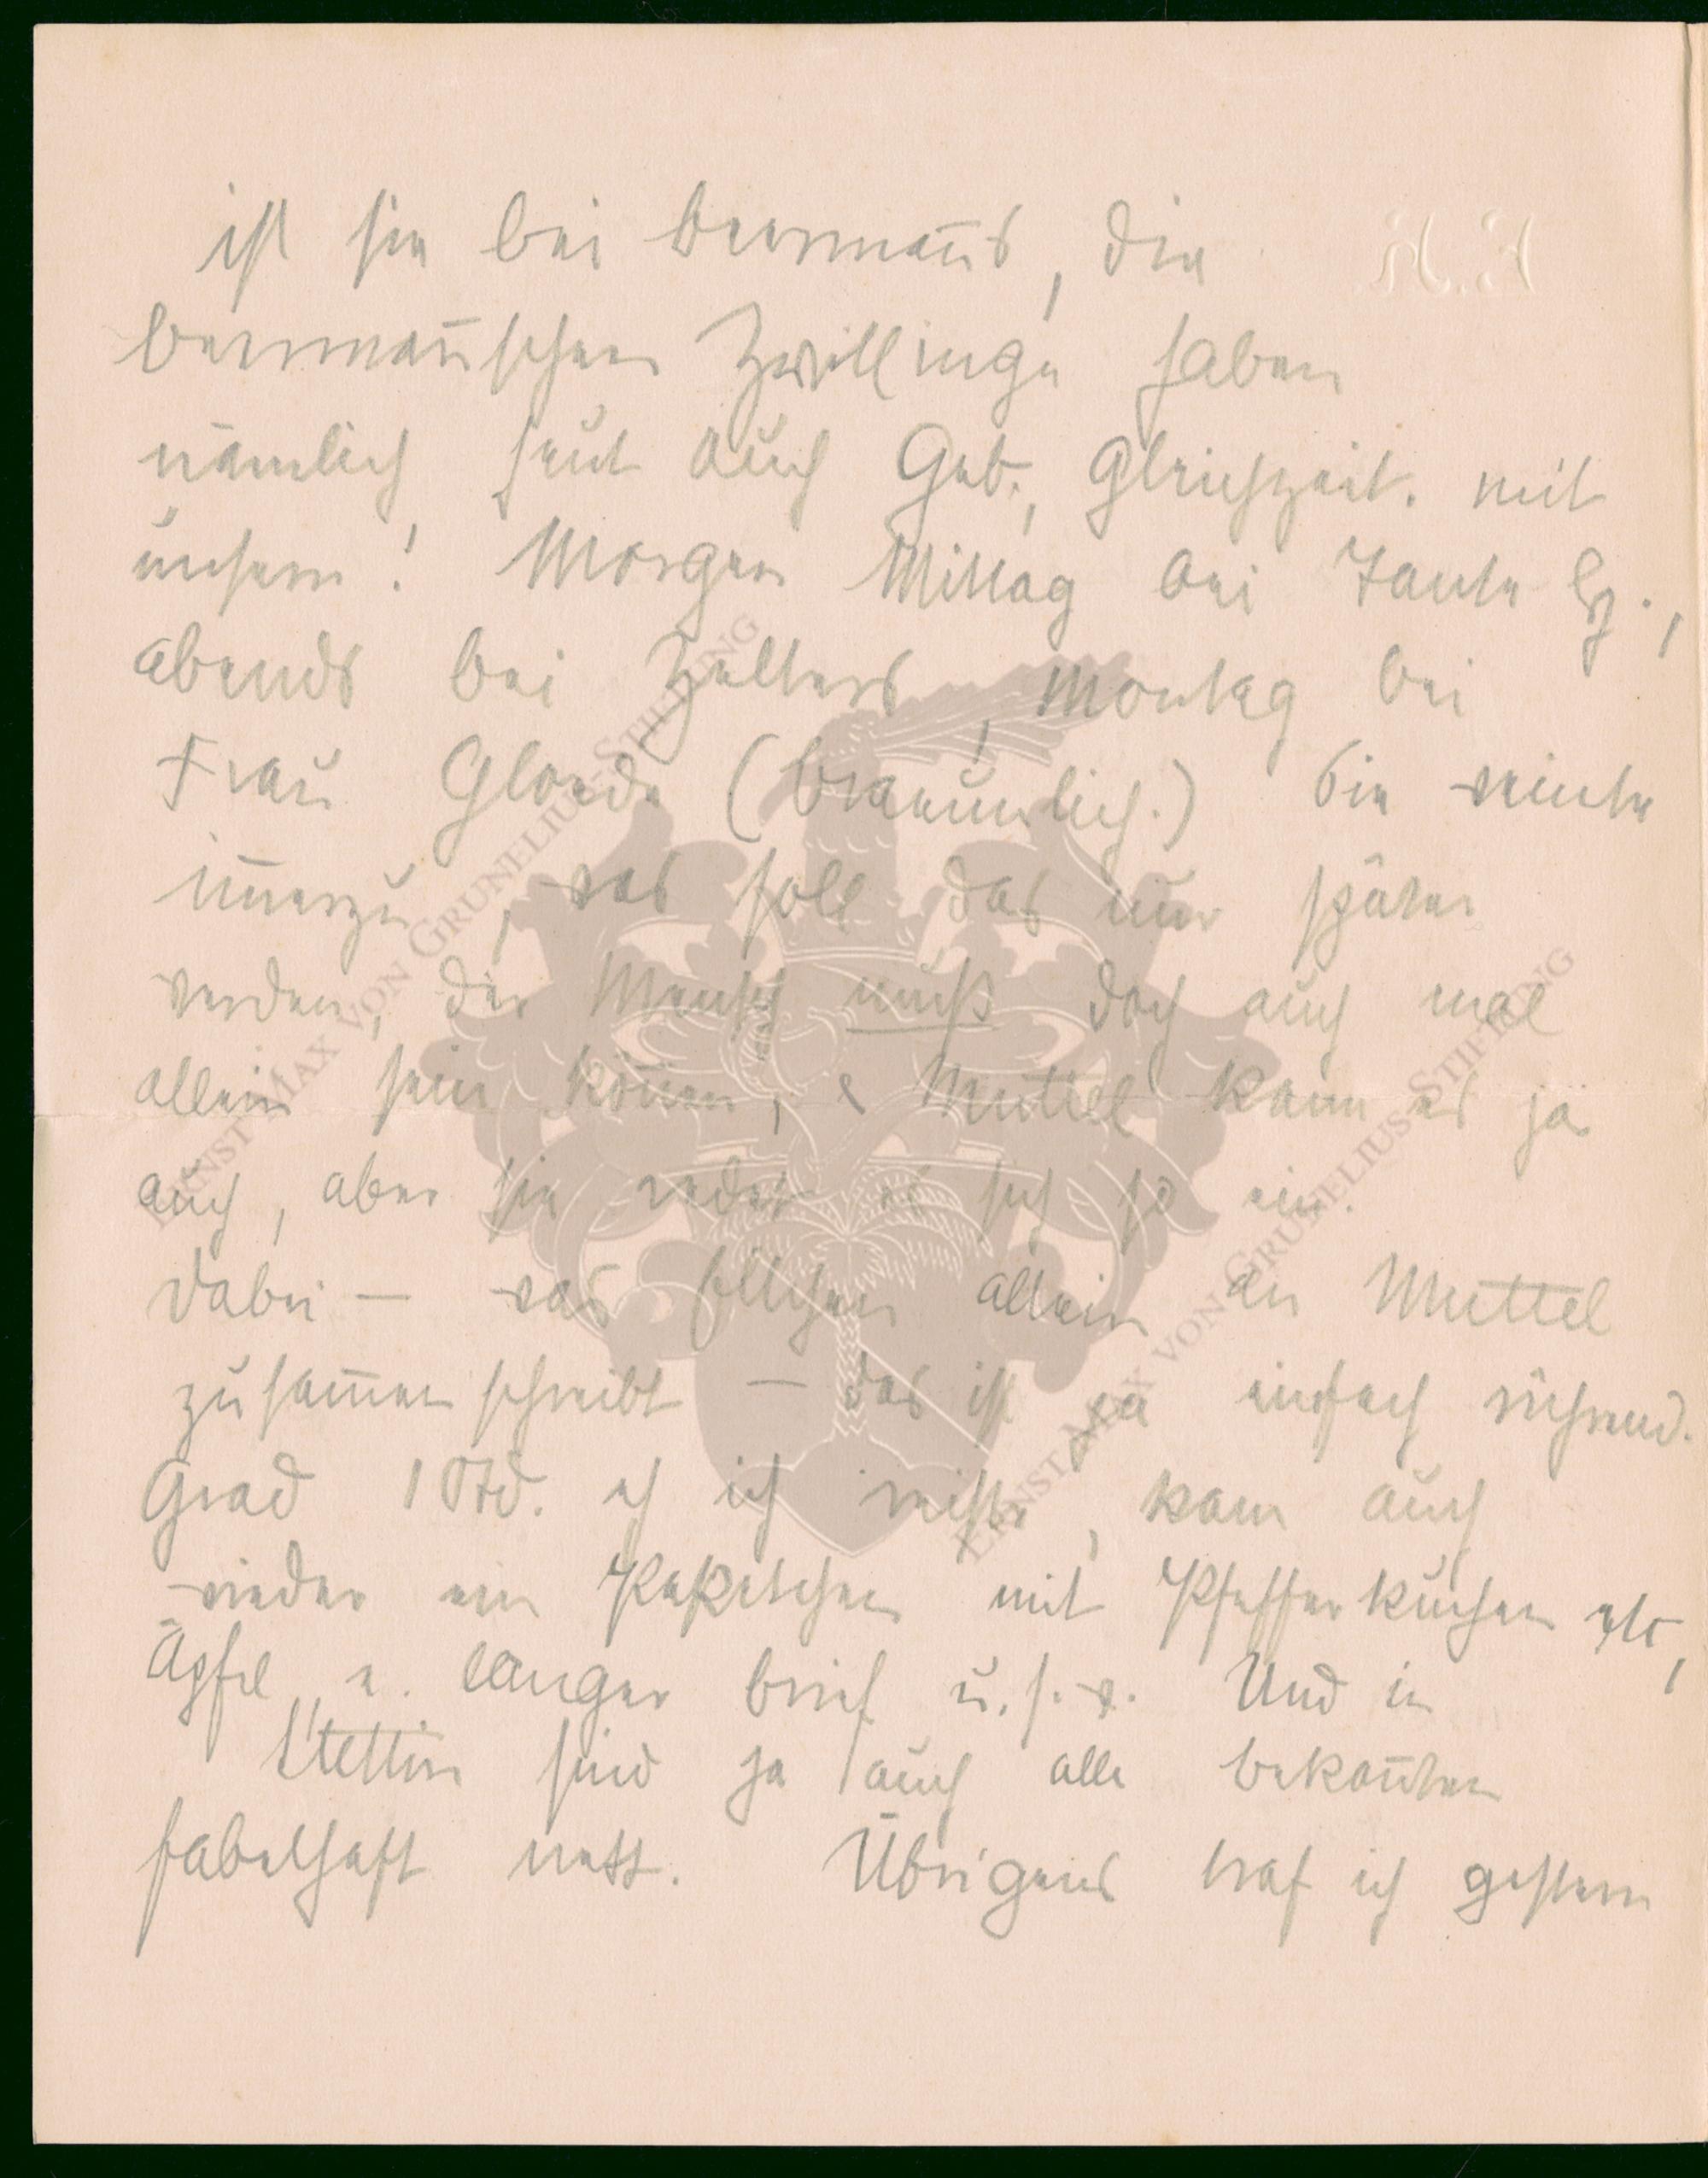 ist sie bei Beermañs, die
Beermañschen Zwillinge haben
nämlich heut auch Geb., gleichzeit. mit
unserm! Morgen Mittag bei Tante
abends bei Zelters, Montag bei
Frau Gloede (Braeunlich.) Sie weinte
im̄erzu, was soll das nur später
werden, der Mensch muß doch auch mal
allein sein kön̄en, & Muttel kann es ja
auch, aber sie redet es sich so ein.
Dabei — was Ellichen allein an Muttel
zusam̄en schreibt — das ist ja einfach rührend.
Grad 1 Std. eh ich reiste, kam auch
wieder ein Paketchen mit Pfefferkuchen etc,
Äpfel, e. langer Brief u.s.w. Und in
Stettin sind ja auch alle Bekan̄ten
fabelhaft nett. Übrigens traf ich gestern
ERNST MAX VON GRUNELIUS-STIFTUNG
ERNST MAX VON GRUNELIUS-STIFTUNG